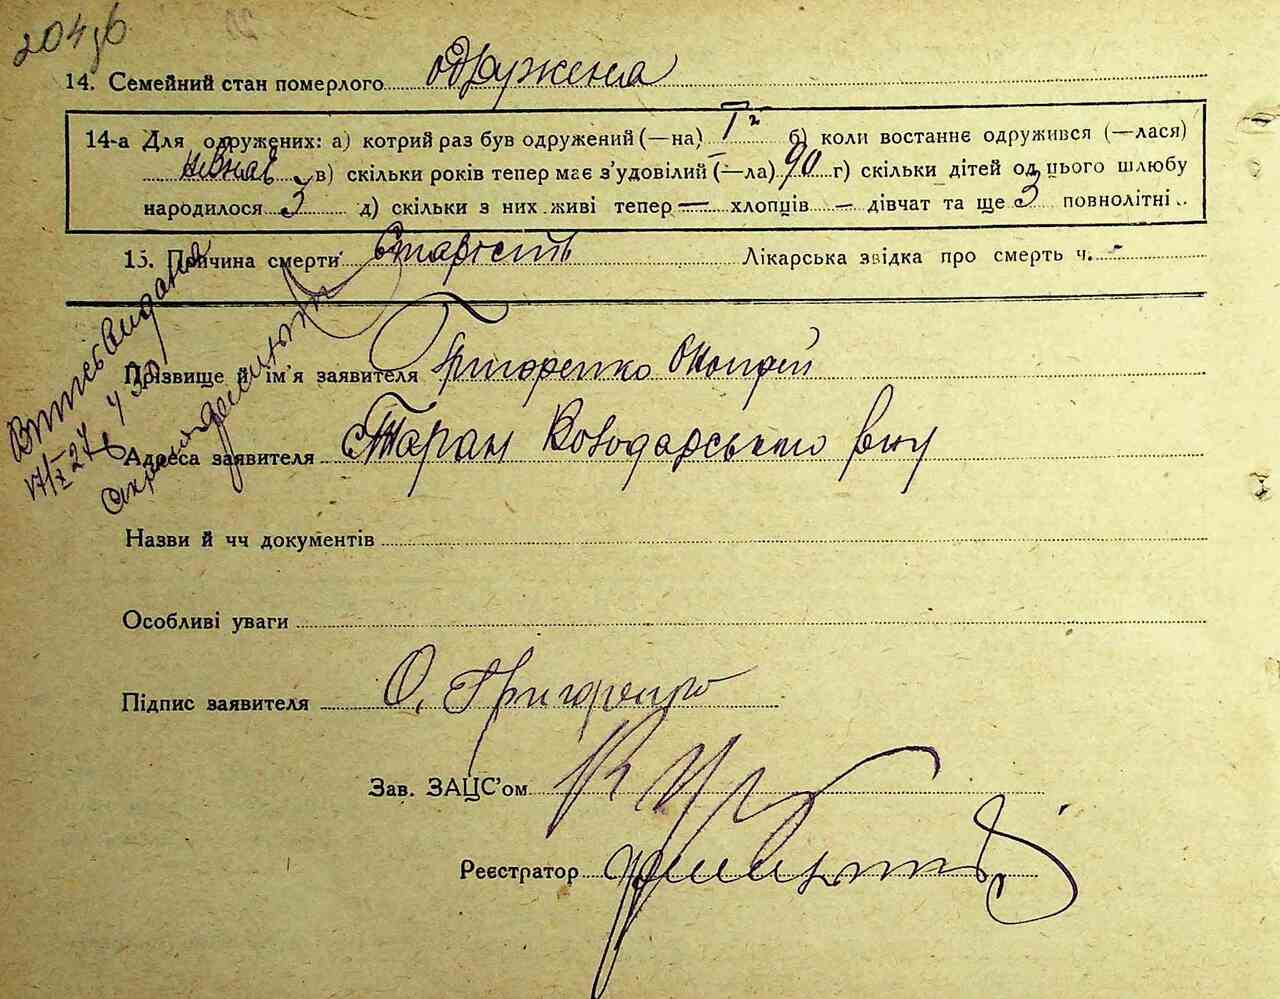 204
14. Семейний стан померлого одружена
14-а Для одружених: а) котрий раз був одружений (—на) I б) коли востаннє одружився (—лася)
в) скільки років тепер має з'удовілий (—ла) 90 г) скільки дітей од цього шлюбу
народилося 3 д) скільки з них живі тепер — хлопців — дівчат та ще 3 повнолітні
15. Причина смерти Старість Лікарська звідка про смерть ч. -
Витяг видана
Прізвище й ім'я заявителя Григоренко
17/X 27
Адреса заявителя с Таран Володарського р-ну
Назви й чч документів
Особливі уваги
Підпис заявителя О. Григоренко
Зав. ЗАЦС'ом
Реєстратор